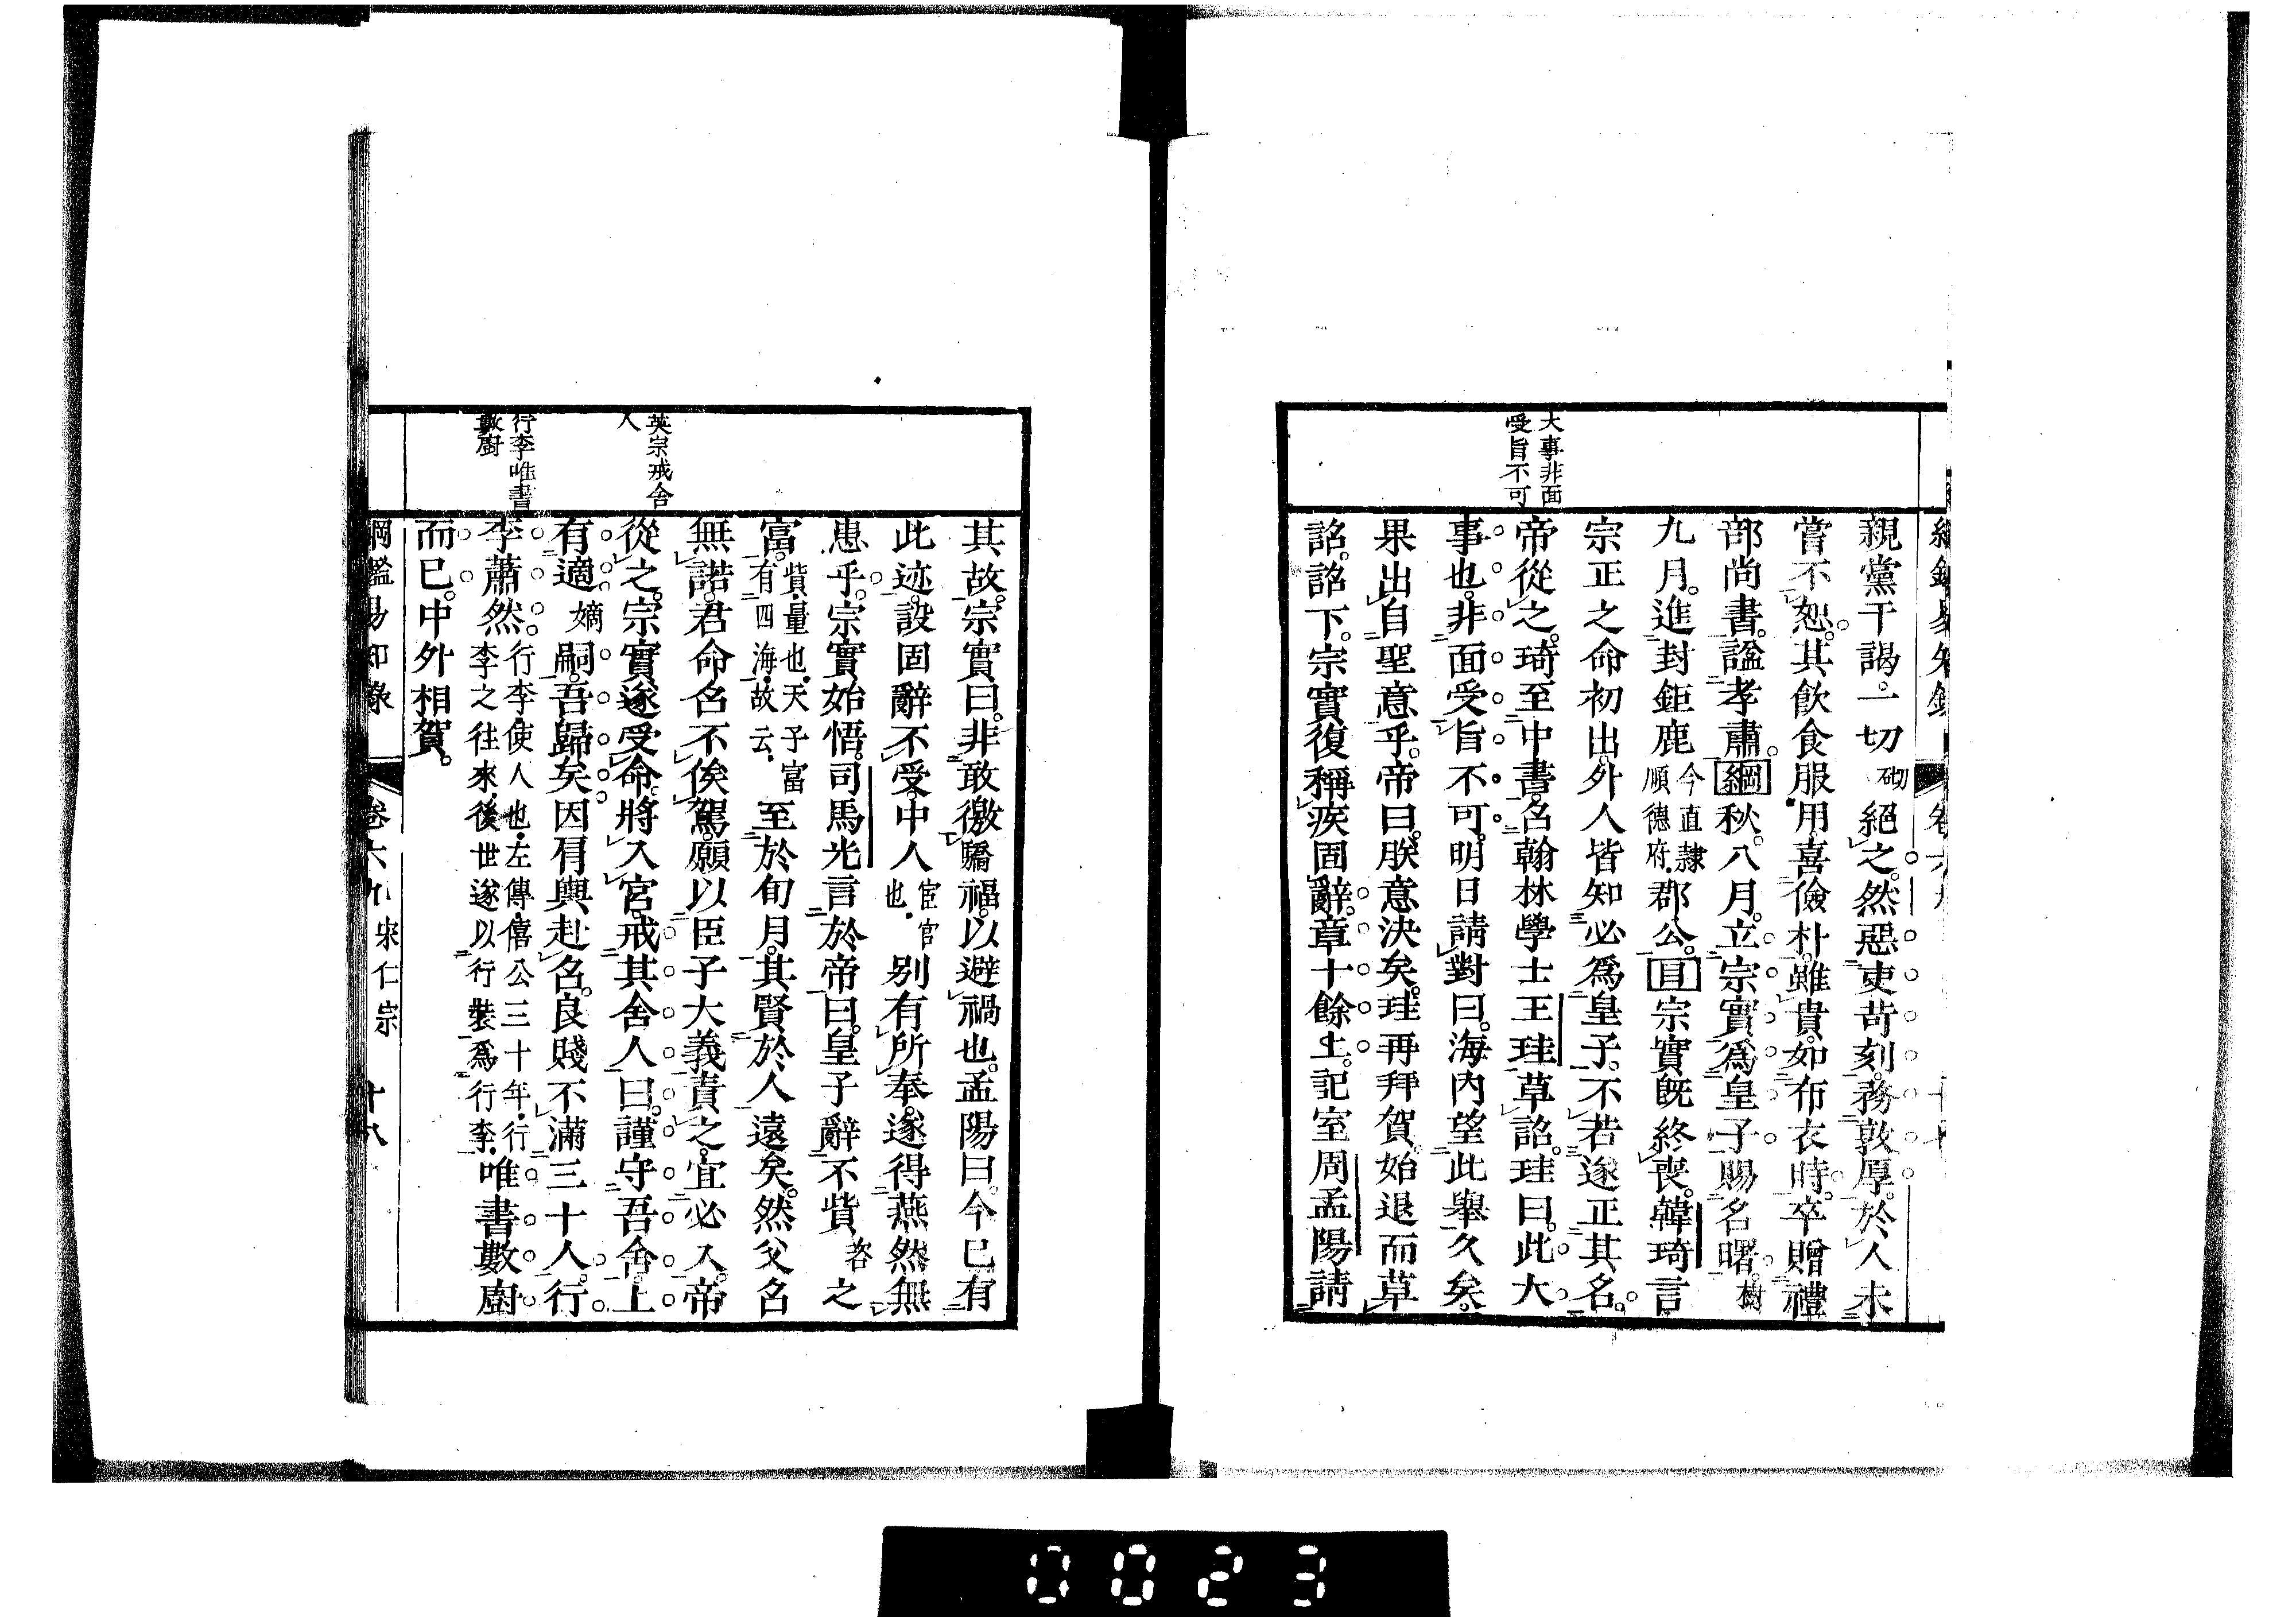 大事非面
受旨不可
親黨干謁。一切砌絕之。然惡吏苛刻。務敦厚。於人未
嘗不恕。其飲食服用。喜儉朴。雖貴。如布衣時。卒贈禮
部尚書。諡孝肅。綱秋。八月。立宗實為皇子。賜名曙。樹
九月。進封鉅鹿今直隸順德府。郡公。目宗實既終喪。韓琦言
宗正之命初出。外人皆知必為皇子。不若遂正其名。
帝從之。琦至中書。召翰林學士王珪草詔。珪曰。此大
事也。非面受旨不可。明日請對曰。海內望此舉久矣。
果出自聖意乎。帝曰。朕意決矣。珪再拜賀。始退而草
詔。詔下。宗實復稱疾固辭。章十餘上。記室周孟陽請
英宗戒舍
人
行李唯書
數廚
其故。宗實曰。非敢徼驕福。以避禍也。孟陽曰。今已有
此迹。設固辭不受。中人宦官也。別有所奉。遂得燕然無
患乎。宗實始悟。司馬光言於帝曰。皇子辭不貲咨之
富。貲。量也。天子富有四海。故云。至於旬月。其賢於人遠矣。然父召
無諾。君命召不俟駕。願以臣子大義責之。宜必入。帝
從之。宗實遂受命。將入宮。戒其舍人曰。謹守吾舍。上
有適嫡嗣。吾歸矣。因肩輿赴召。良賤不滿三十人。行
李蕭然。行李。使人也。左傳。僖公三十年。行李之往來。後世遂以行裝為行李。唯書數廚
而已。中外相賀。
綱鑑易知錄 卷六九 宋仁宗 十八